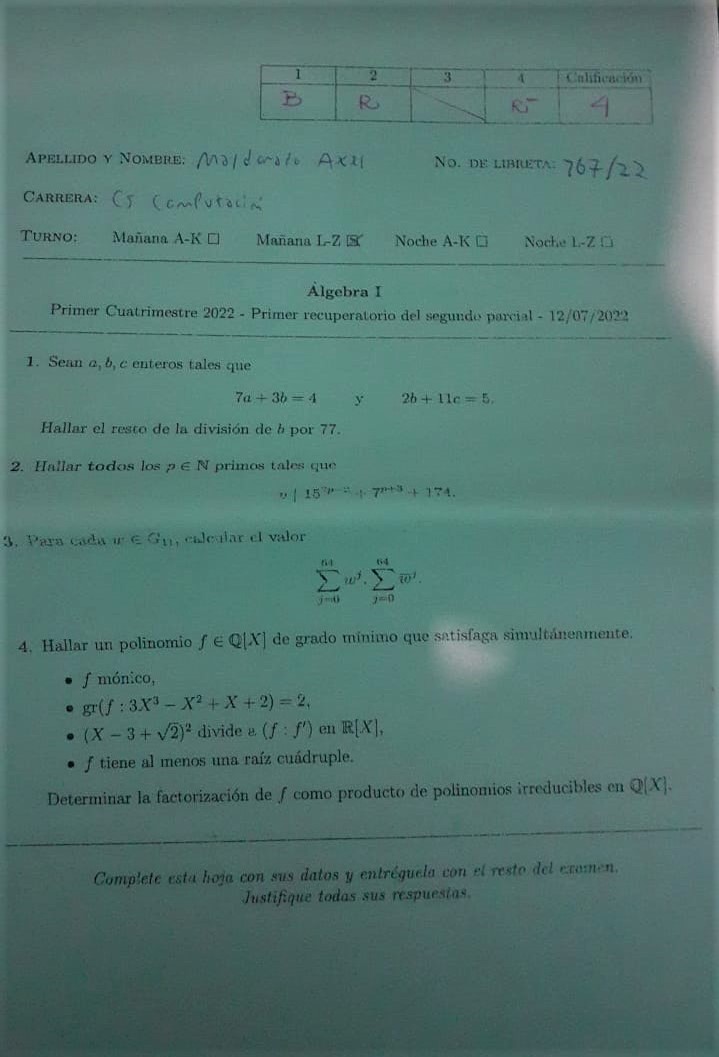 1 2 3 4 Calificación
B R R- 4
APELLIDO Y NOMBRE: Maldonado Axel No. DE LIBRETA: 767/22
CARRERA: Cs Computación
TURNO: Mañana A-K ☐ Mañana L-Z ☒ Noche A-K ☐ Noche L-Z ☐
Álgebra I
Primer Cuatrimestre 2022 - Primer recuperatorio del segundo parcial - 12/07/2022
1. Sean a, b, c enteros tales que
7a + 3b = 4 y 2b + 11c = 5.
Hallar el resto de la división de b por 77.
2. Hallar todos los p ∈ ℕ primos tales que
+ 7ᵖ⁺³ + 174.
3. Para cada w ∈ G₁₁, calcular el valor
∑_{j=0}^{64} w^j . ∑_{j=0}^{64} w̅^j.
4. Hallar un polinomio f ∈ ℚ[X] de grado mínimo que satisfaga simultáneamente.
• f mónico,
• gr(f : 3X³ − X² + X + 2) = 2,
• (X − 3 + √2)² divide a (f : f′) en ℝ[X],
• f tiene al menos una raíz cuádruple.
Determinar la factorización de f como producto de polinomios irreducibles en ℚ[X].
Complete esta hoja con sus datos y entréguela con el resto del examen.
Justifique todas sus respuestas.